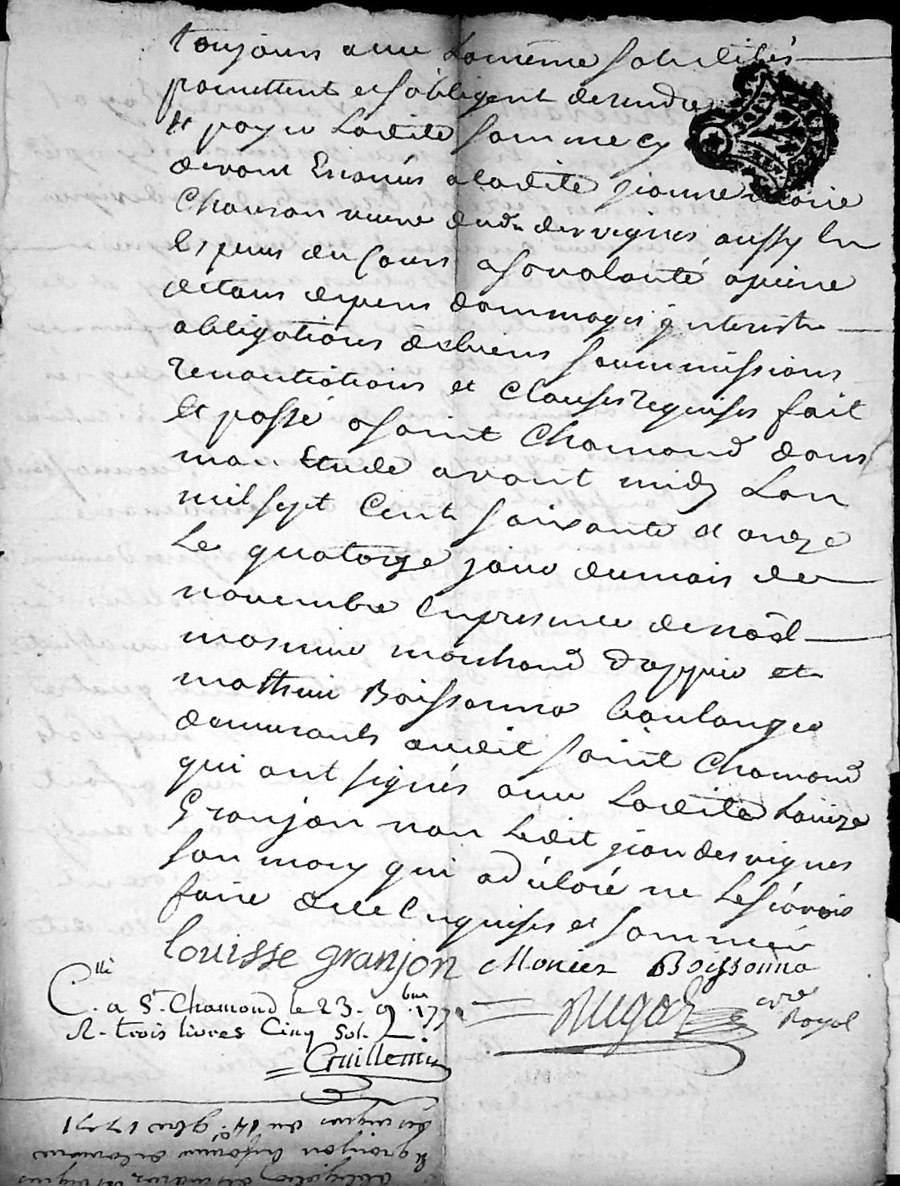 toujours avec la même solidités
promettent et sobligent de rendre
et payer laditte somme cy
devant Enoncés a laditte jeanne marie
Chausson veuve dudt desvignes aussy en
Espesses du Cours a sa volonté apeine
de tous depens dommages jnterests
obligations de biens soummissions
renontiations et Clauses requises fait
Et passé a saint Chamond dans
mon Etude avant midy Lan
mil sept Cent soixante et onze
Le quatorze jour du mois de
novembre En presence de noël
monier marchand drappier et
mathieu Boissonna boulanger
demeurants audit saint Chamond
qui ont signés avec Laditte Louize
Granjon non Ledit jean desvignes
son mary qui a declaré ne Le sçavoir
faire de ce Enquises et sommés
Louisse granjon Monier Boissonna
C.lle a St. Chamond le 23. 9bre 177
R. trois livres Cinq Sol.
Guillemin
nre Royal
obligation
granjon
desvignes du 14e. 9bre 1771